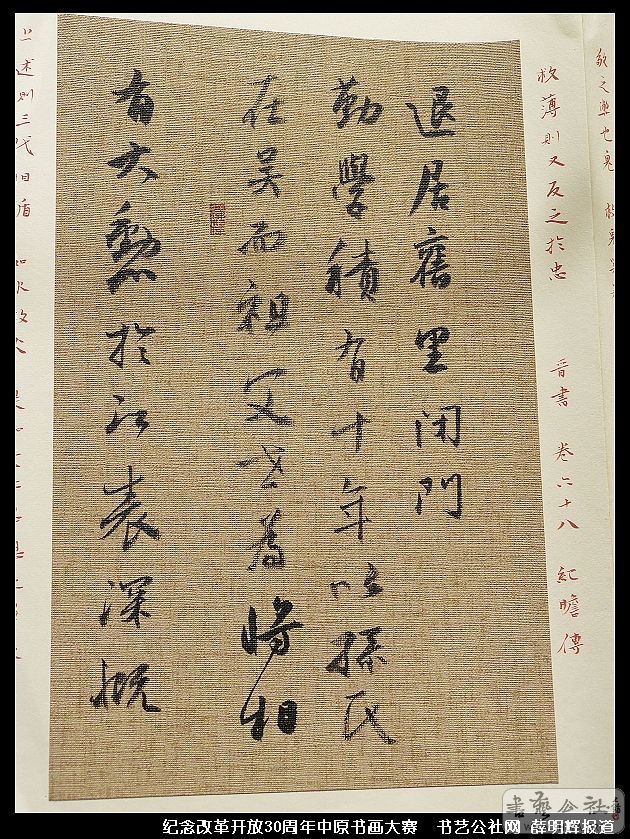 敬之弊也鬼
救薄則又反之於忠 晋書 卷六十八 紀瞻傳
退居舊里閉門
勤學積有十年以孫氏
在吴而祖父世為將相
有大勲於江表深慨
三代
纪念改革开放30周年中原书画大赛 书艺公社网 薛明辉报道
書藝公社